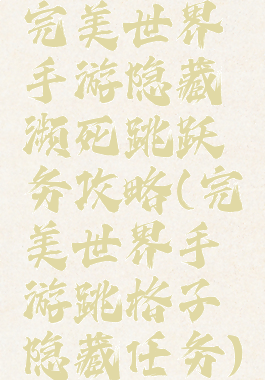 完美世界
手游隐藏
濒死跳跃
务攻略(完
美世界手
游跳格子
隐藏任务)